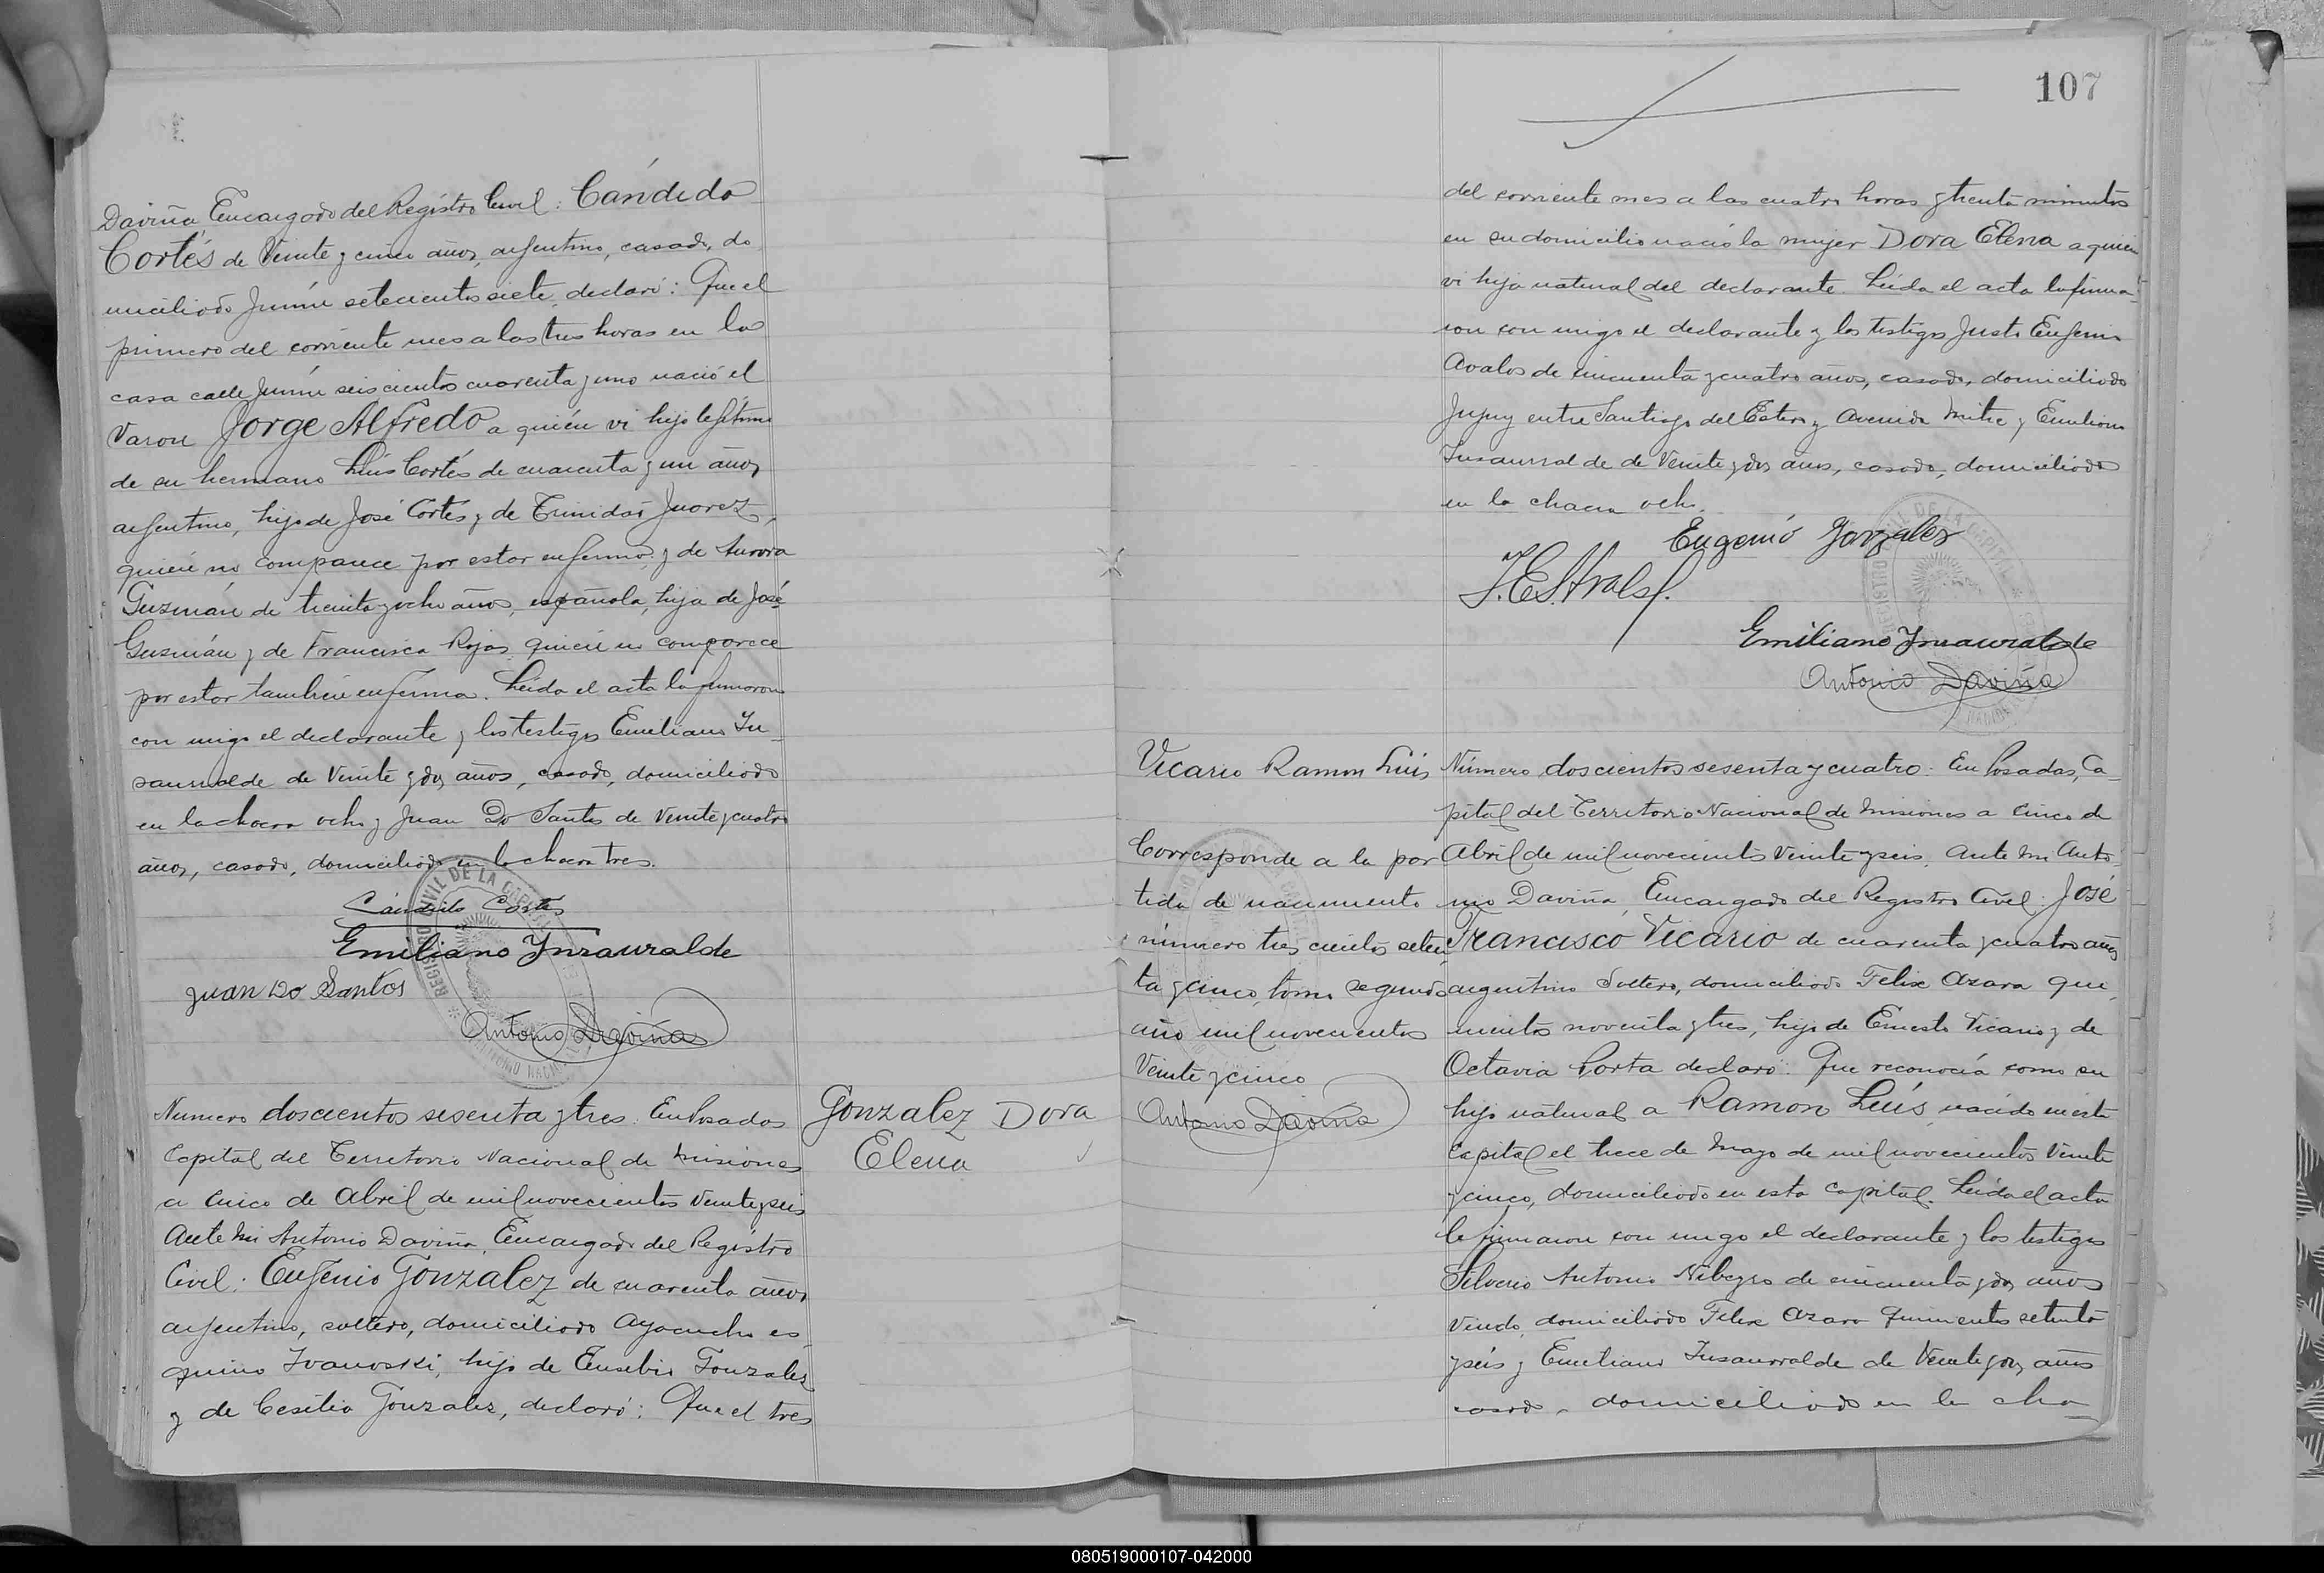 Daviña, Encargado del Registro Civil: Cándido
Cortés de Veinte y cinco años, argentino, casado, do
miciliado Junín setecientos siete, declaró: Que el
primero del corriente mes a las tres horas en la
casa calle Junín seiscientos cuarenta y uno nació el
Varon Jorge Alfredo a quién vi hijo legítimo
de su hermano Luis Cortés de cuarenta y un años,
argentino, hijo de José Cortés y de Trinidad Juarez,
quién no comparece por estar enfermo y de Aurora
Guzmán de treinta y ocho años, española, hija de José
Guzmán y de Francisca Rojas quién no comparece
por estar también enferma. Leída el acta la firmaron
con migo el declarante y los testigos Emiliano In
saurralde de Veinte y dos años, casado, domiciliado
en la chacra ocho y Juan Do Santos de Veinte y cuatro
años, casado, domiciliado en la chacra tres.
Cándido Cortés
Emiliano Insaurralde
Juan Do Santos
Antonio Daviña
Numero doscientos sesenta y tres. En Posadas
Capital del Territorio Nacional de Misiones
a Cinco de Abril de mil novecientos Veinte y seis
Ante Mi Antonio Daviña, Encargado del Registro
Civil: Eugenio Gonzalez de cuarenta años
argentino, soltero, domiciliado Ayacucho es
quina Ivanoski, hijo de Eusebio Gonzalez
y de Cesilia Gonzalez, declaró: Que el tres
Gonzalez Dora
Elena
107
del corriente mes a las cuatro horas y treinta minutos
en su domicilio nació la mujer Dora Elena a quien
vi hija natural del declarante. Leída el acta la firma
ron con migo el declarante y los testigos Justo Eugenio
Avalos de cincuenta y cuatro años, casado, domiciliado
Jujuy entre Santiago del Estero y Avenida Mitre y Emiliano
Insaurralde de Veinte y dos años, casado, domiciliado
en la chacra ocho.
Eugenio Gonzalez
Emiliano Insaurralde
Antonio Daviña
Vicario Ramon Luis
Corresponde a la par
tida de nacimiento
número tres cientos seten
ta y cinco, tomo segundo
año mil novecientos
Veinte y cinco
Antonio Daviña
Número doscientos sesenta y cuatro: En Posadas, Ca
pital del Territorio Nacional de Misiones a Cinco de
Abril de mil novecientos Veinte y seis, Ante Mi Anto
nio Daviña, Encargado del Registro Civil: José
Francisco Vicario de cuarenta y cuatro años
argentino Soltero, domiciliado Felix Azara qui
nientos noventa y tres, hijo de Ernesto Vicario y de
Octavia Porta declaró: Que reconocía como su
hijo natural a Ramon Luis, nacido en esta
Capital el trece de Mayo de mil novecientos Veinte
y cinco, domiciliado en esta Capital. Leída el acta
la firmaron con migo el declarante y los testigos
Silverio Antonio de cincuenta y dos años
Viudo, domiciliado Felix Azara quinientos setenta
y seis y Emiliano Insaurralde de Veinte y dos años
casado, domiciliado en la cha
080519000107-042000